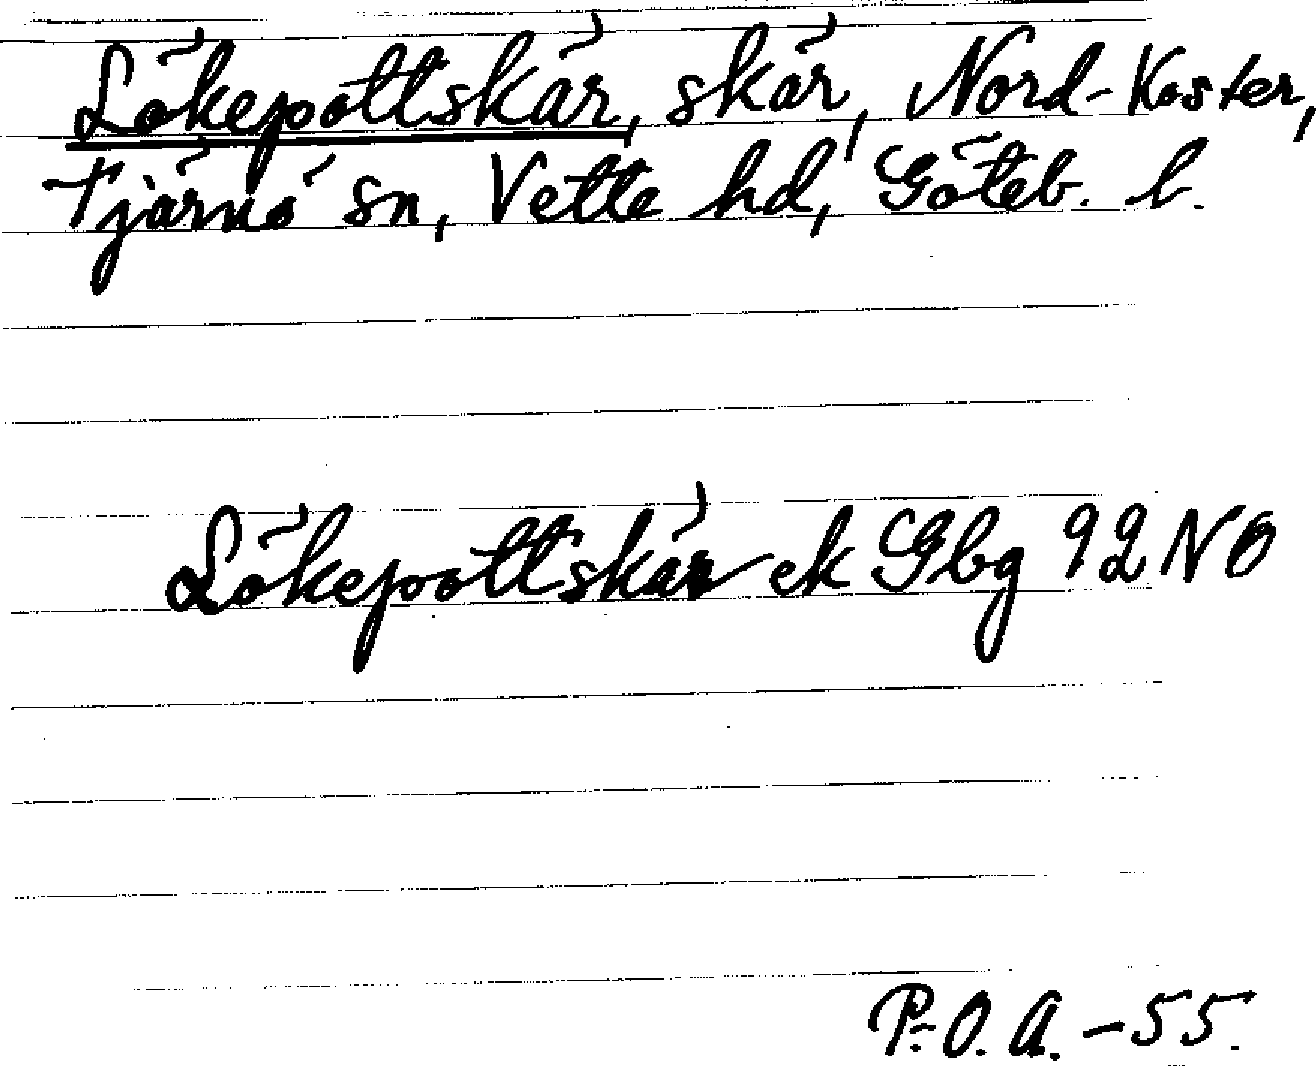 Lökepottskär, skär, Nord-Koster,
Tjärnö sn, Vette hd, Göteb. l.
Lökepottskär ek Gbg 92 NO
P.-O. A. -55.